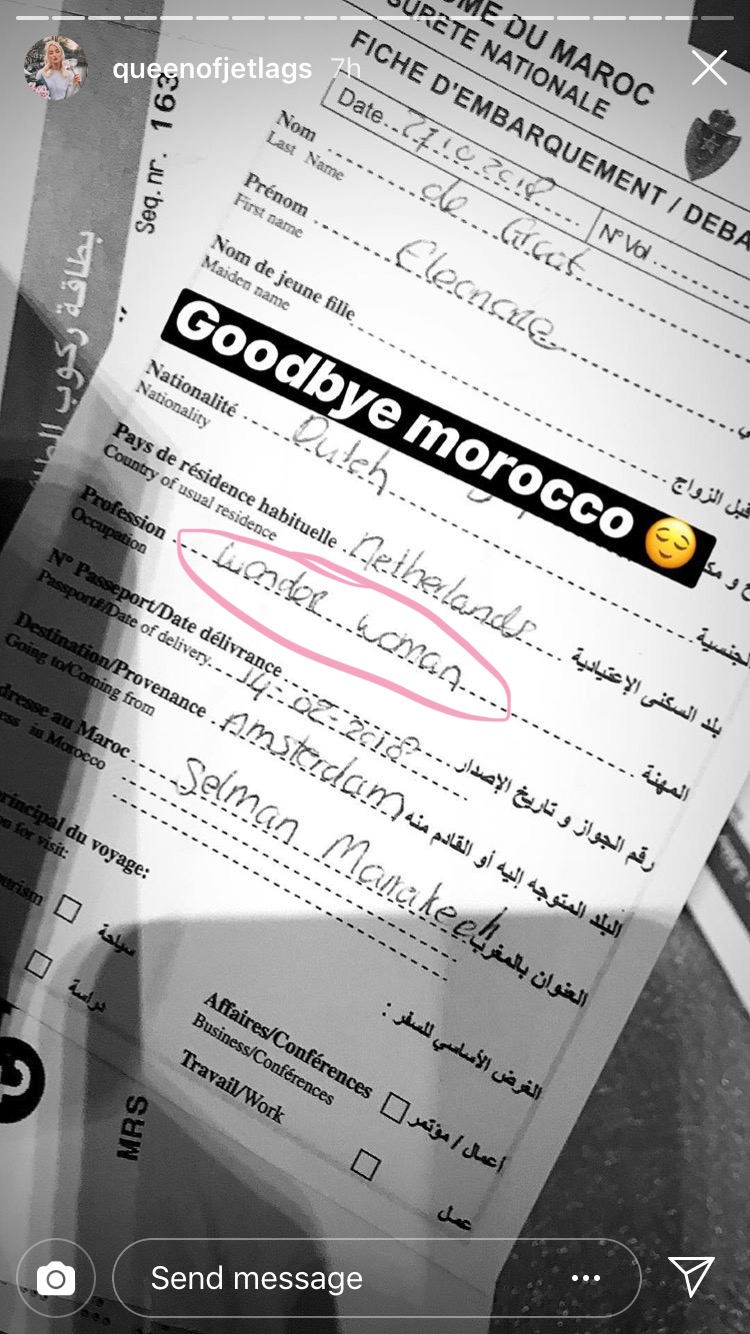 queenofjetlags 7h
OME DU MAROC
SÛRETÉ NATIONALE
FICHE D'EMBARQUEMENT / DEBA
Date 27.10.2018
N° Vol
Seq.nr. 163
Nom de Groot
Last Name
Prénom Eleonore
First name
Nom de jeune fille
Maiden name
قبل الزواج
Goodbye morocco 😌
Nationalité Dutch
Nationality
Pays de résidence habituelle Netherlands بلد السكنى الإعتيادية
Country of usual residence
Profession wonder woman المهنة
Occupation
N° Passeport/Date délivrance 14-02-2018 رقم الجواز و تاريخ الإصدار
Passport#/Date of delivery
Destination/Provenance Amsterdam البلد المتوجه إليه أو القادم منه
Going to/Coming from
dresse au Maroc Selman Marrakech العنوان بالمغرب
ess in Morocco
rincipal du voyage: الغرض الأساسي للسفر :
on for visit:
ourism سياحة
دراسة
Affaires/Conférences أعمال / مؤتمر
Business/Conférences
Travail/Work عمل
MRS
بطاقة ركوب
Send message